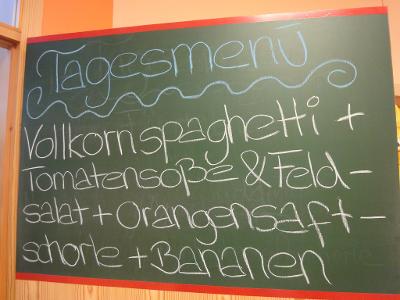 Tagesmenü
Vollkornspaghetti +
Tomatensoße & Feld-
salat + Orangensaft-
schorle + Bananen